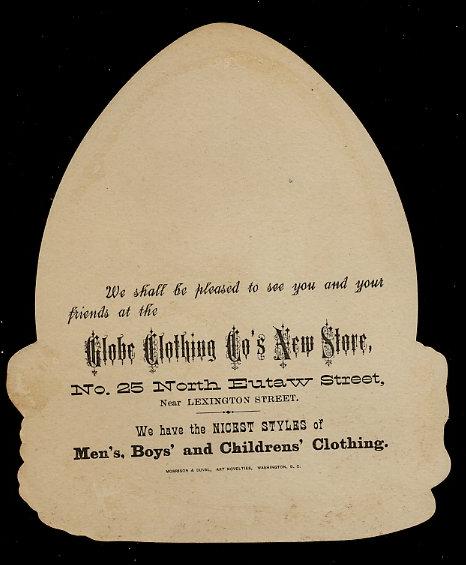 We shall be pleased to see you and your
friends at the
Globe Clothing Co's New Store,
No. 25 North Eutaw Street,
Near LEXINGTON STREET.
We have the NICEST STYLES of
Men's, Boys' and Childrens' Clothing.
MORRISON & DUVAL, ART NOVELTIES, WASHINGTON, D. C.